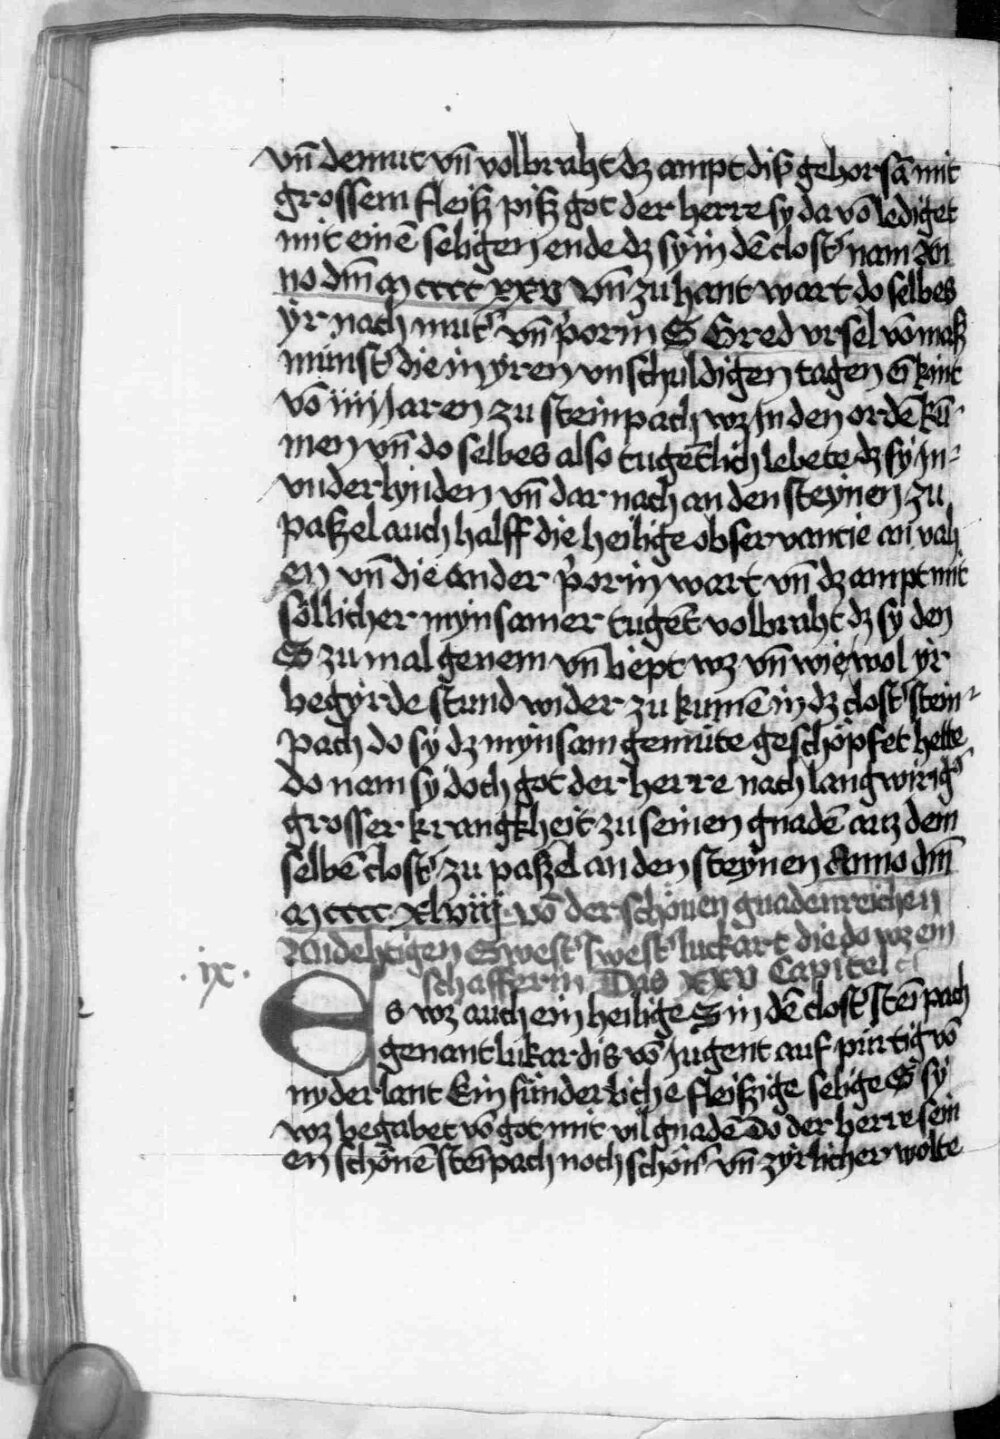 vn̄ demut vn̄ volbraht dz ampt diß gehorsā mit
grossem fleiß piß got der herre sy da vō lediget
mit einē seligen ende dz sy in dē clost' nam An
no dm̄ m cccc xxv vn̄ zu hant wart do selbes
yr nach mut' vn̄ p'orin S Gred vrsel vō maß
münst' die in yren vnschuldigen tagen ē kint
vō iiij Jaren zu steinpach wz in den ordē kū
men vn̄ do selbes also tugētlich lebete dz sy in-
vnderlynden vn̄ dar nach an den steynen zu
paßel auch halff die heilige observancie an vah
en vn̄ die ander p'orin wart vn̄ dz ampt mit
söllicher mynsamer tugēt volbraht dz sy den
S zu mal genem vn̄ liept wz vn̄ wie wol yr
begyrde stund wider zu kumē in dz clost' stein-
pach do sy dz mynsam gemüte geschöpfet hette
do nam sy doch got der herre nach langwirig'
grosser krangkheit zu seinen gnadē auz dem
selbē clost' zu paßel an den steynen Anno dm̄
m cccc xlviij vō der schönen gnadenreichen
Andehtigen Swest' luckart die do wz ein
schafferin Das XXV Capitel
. ix .
Es wz auch ein heilige S in dē clost' steīpach
genant lukardis vō Jugent auf pürtig vō
nyderlant Ein sünderliche fleißige selige S sy
wz begabet vō got mit vil gnadē Do der herre sein
en schönē steīpach noch schön' vn̄ zyrlicher wolte